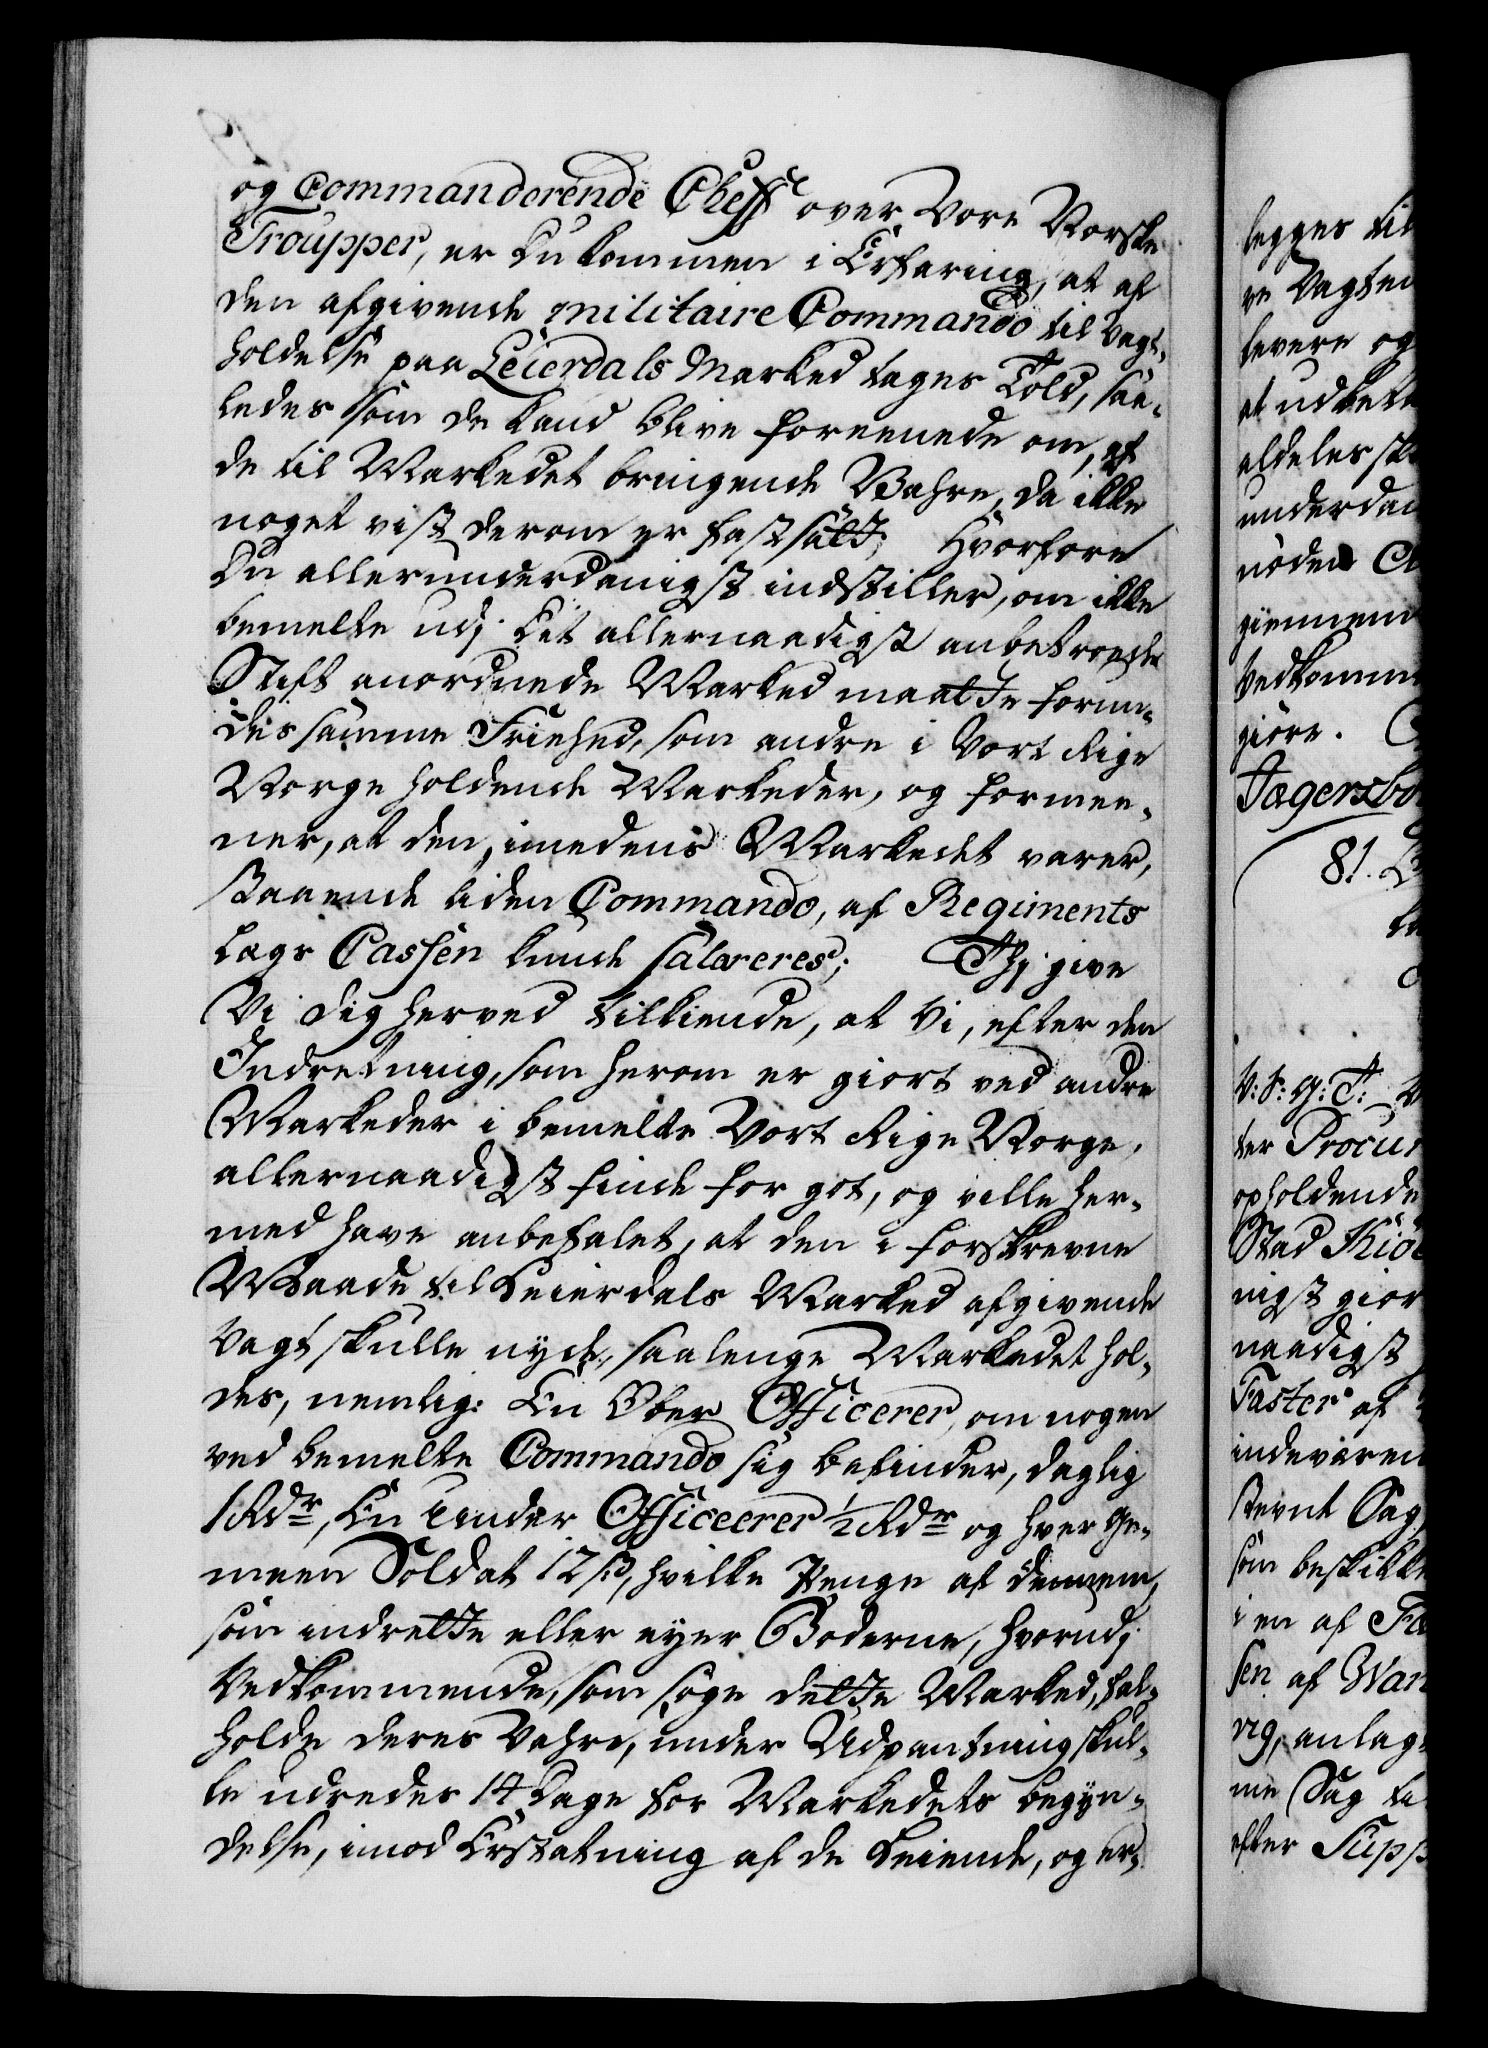 og Commanderende Cheff over Vore Norske
Troupper, er du kommen i Erfaring, at af
den afgivende militaire Commando til Vagt-
holdelse paa Leierdals Marked tages Told, saa-
ledes som de kand blive foreenede om, af
de til Markedet bringende Vahre, da ikke
noget vist derom er fastsatt; Hvorfore
du allerunderdanigst indstiller, om ikke
bemelte udj det allernaadigst anbetroede
Stift anordnede Marked maatte forun-
des samme Friehed, som andre i Vort Rige
Norge holdende Markeder, og formee-
ner, at den, imedens Markedet varer,
staaende liden Commando, af Regiments
Lags Cassen kunde salareres; Thj give
Vi dig herved tilkiende, at Vi, efter den
Indretning, som herom er giort ved andre
Markeder i bemelte Vort Rige Norge,
allernaadigst finde for got, og ville her-
med have anbefalet, at den i forskrevne
Maade til Leierdals Marked afgivende
Vagt skulle nyde, saalenge Markedet hol-
des, nemlig: En Ober Officerer, om nogen
ved bemelte Commando sig befinder, daglig
1 Rdr, En Under Officeerer 1/2 Rdr og hver Ge-
meen Soldat 12 ß, hvilke Penge af dennem,
som indrette eller eyer Boderne, hvorudj
Vedkommende, som søge dette Marked, fal-
holde deres Vahre, under Udpantning skul-
le udredes 14 Dage for Markedets begyn-
delse, imod Erstatning af de Leiende, og er-
legges til
re Vagten
levere og
at udbet
aldeles sk
underdan
nøden
giennem
Vedkomm
giøre.
Jægersbo
81.
V: S: G: T:
ter Procur
opholdende
Stad Kiö
nigst gior
naadigst
Faster af
indeværen
stevnt Sag
som beskikke
i en af
sen af
vig, anlag
me Sag
efter Supp